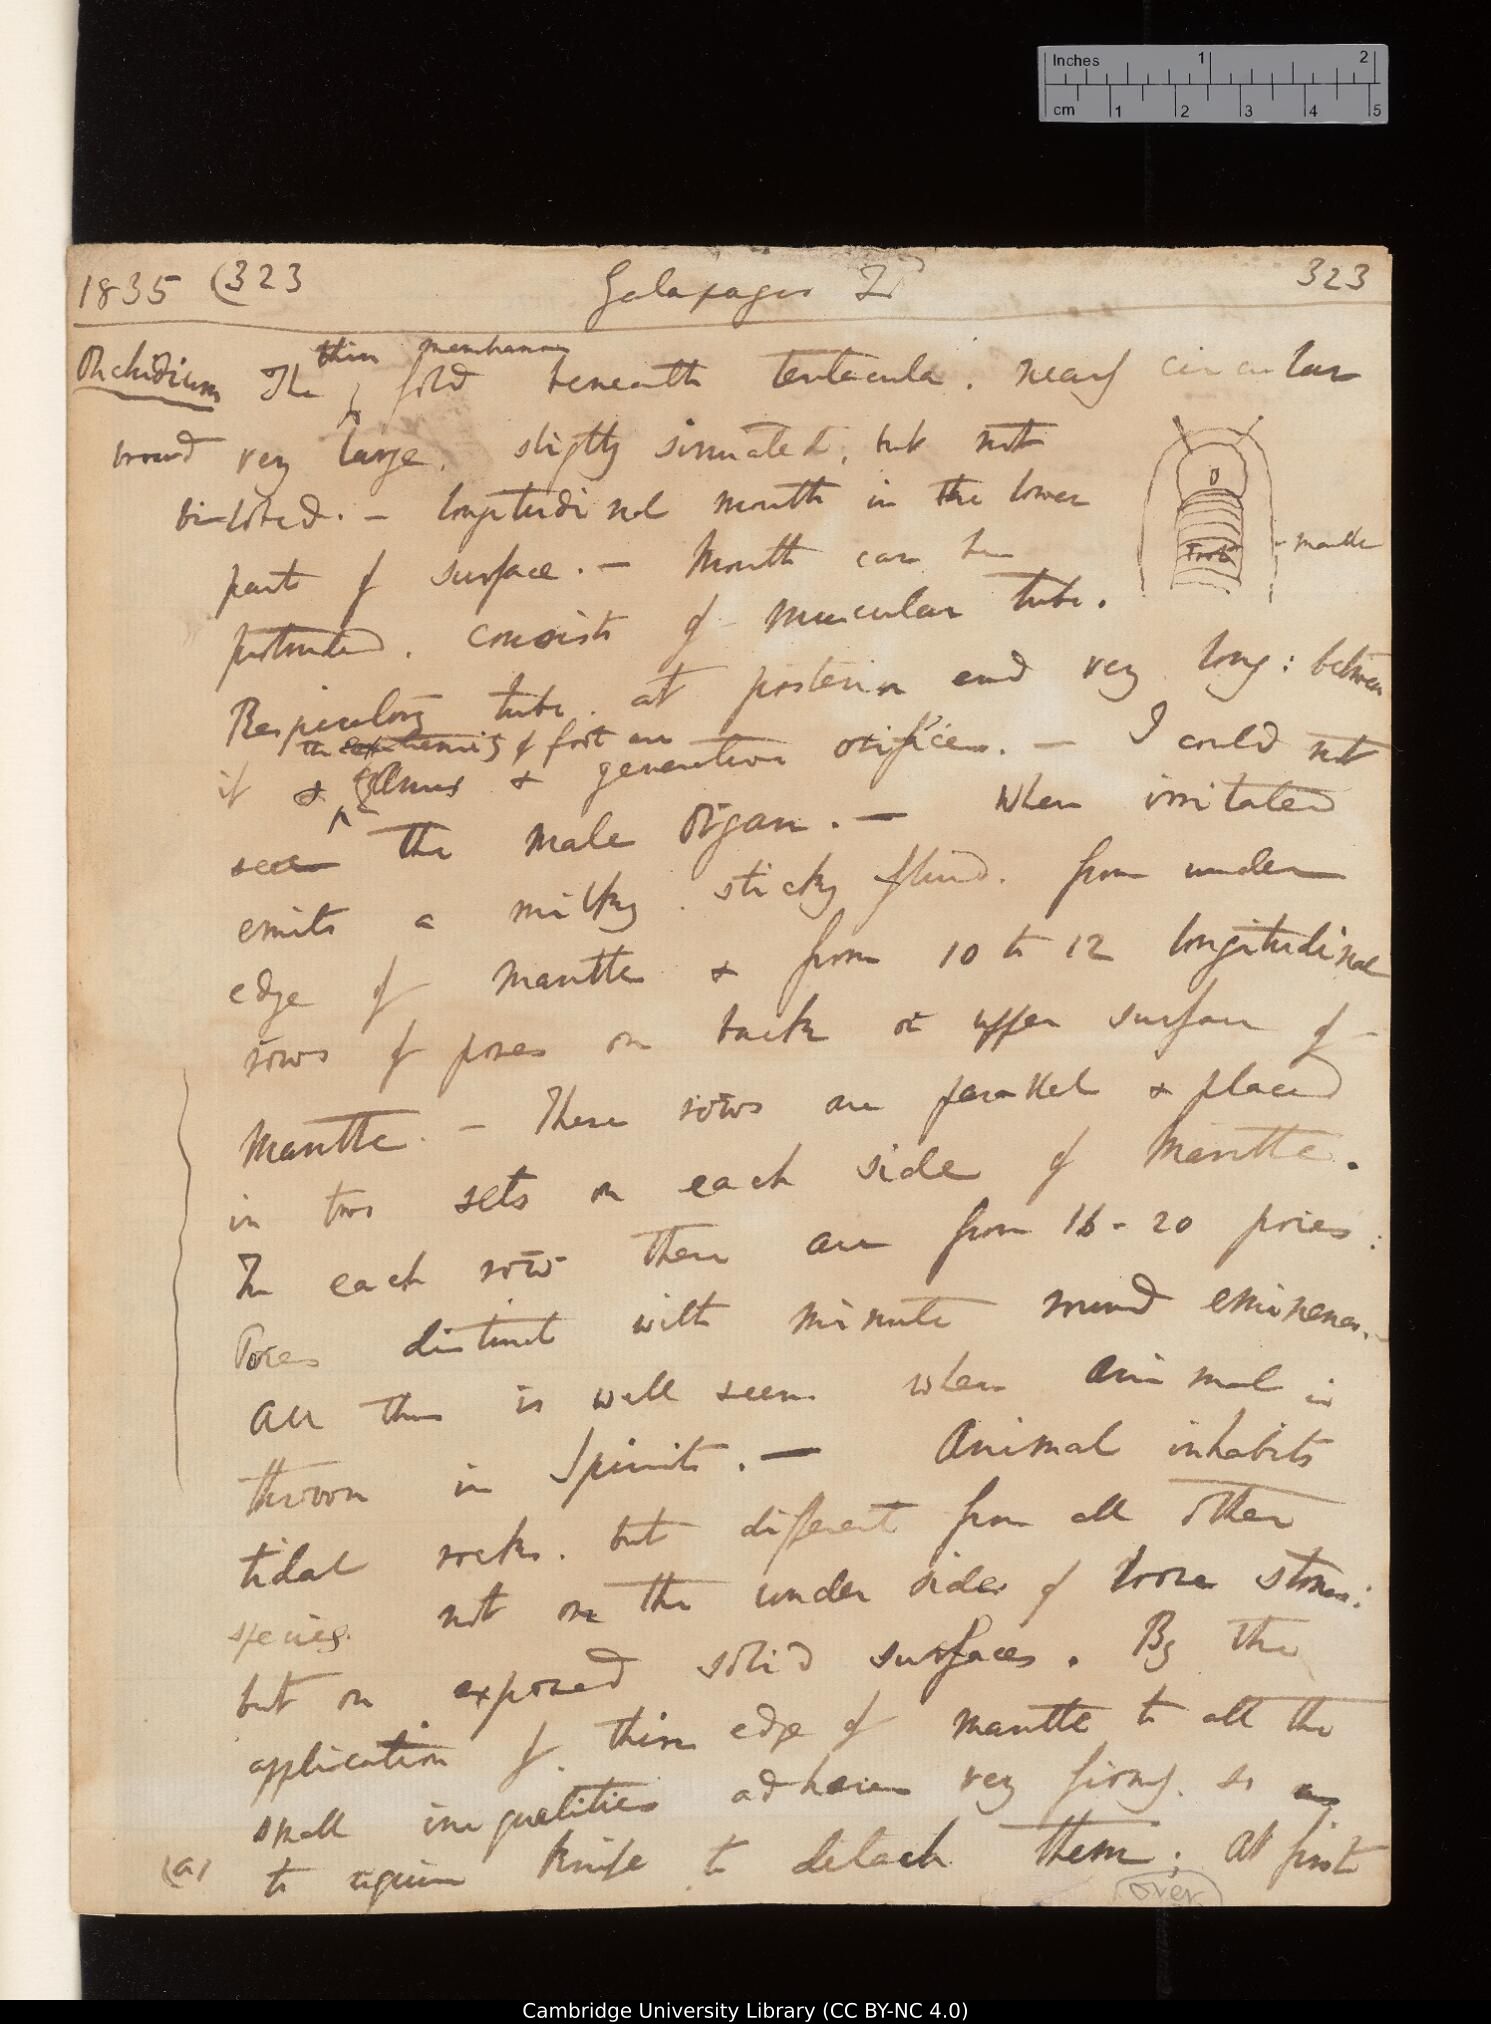 Inches 1 2
cm 1 2 3 4 5
1835 (323 Galapagos Is 323
Onchidium The thin membranous fold beneath tentacula, nearly circular
broad very large, slightly sinuated, but not
bi-lobed. — longitudinal mouth in the lower
part of surface. — Mouth can be
protruded, consists of muscular tube.
Foot
mantle
Respiratory tube at posterior end very long: between
the extremity of foot are
it & Anus & generative orifices. — I could not
see the male organ. — When irritated
emits a milky sticky fluid from under
edge of mantle & from 10 to 12 longitudinal
rows of pores on back or upper surface of
mantle. — These rows are parallel & placed
in two sets on each side of mantle.
In each row there are from 16-20 pores:
Pores distinct with minute round eminences.
All this is well seen when animal is
thrown in Spirits. — Animal inhabits
tidal rocks. but different from all other
species. not on the under sides of loose stones:
but on exposed solid surfaces. By the
application of thin edge of mantle to all the
small inequalities adheres very firmly, so as
(a) to require knife to detach them: At first
(over)
Cambridge University Library (CC BY-NC 4.0)